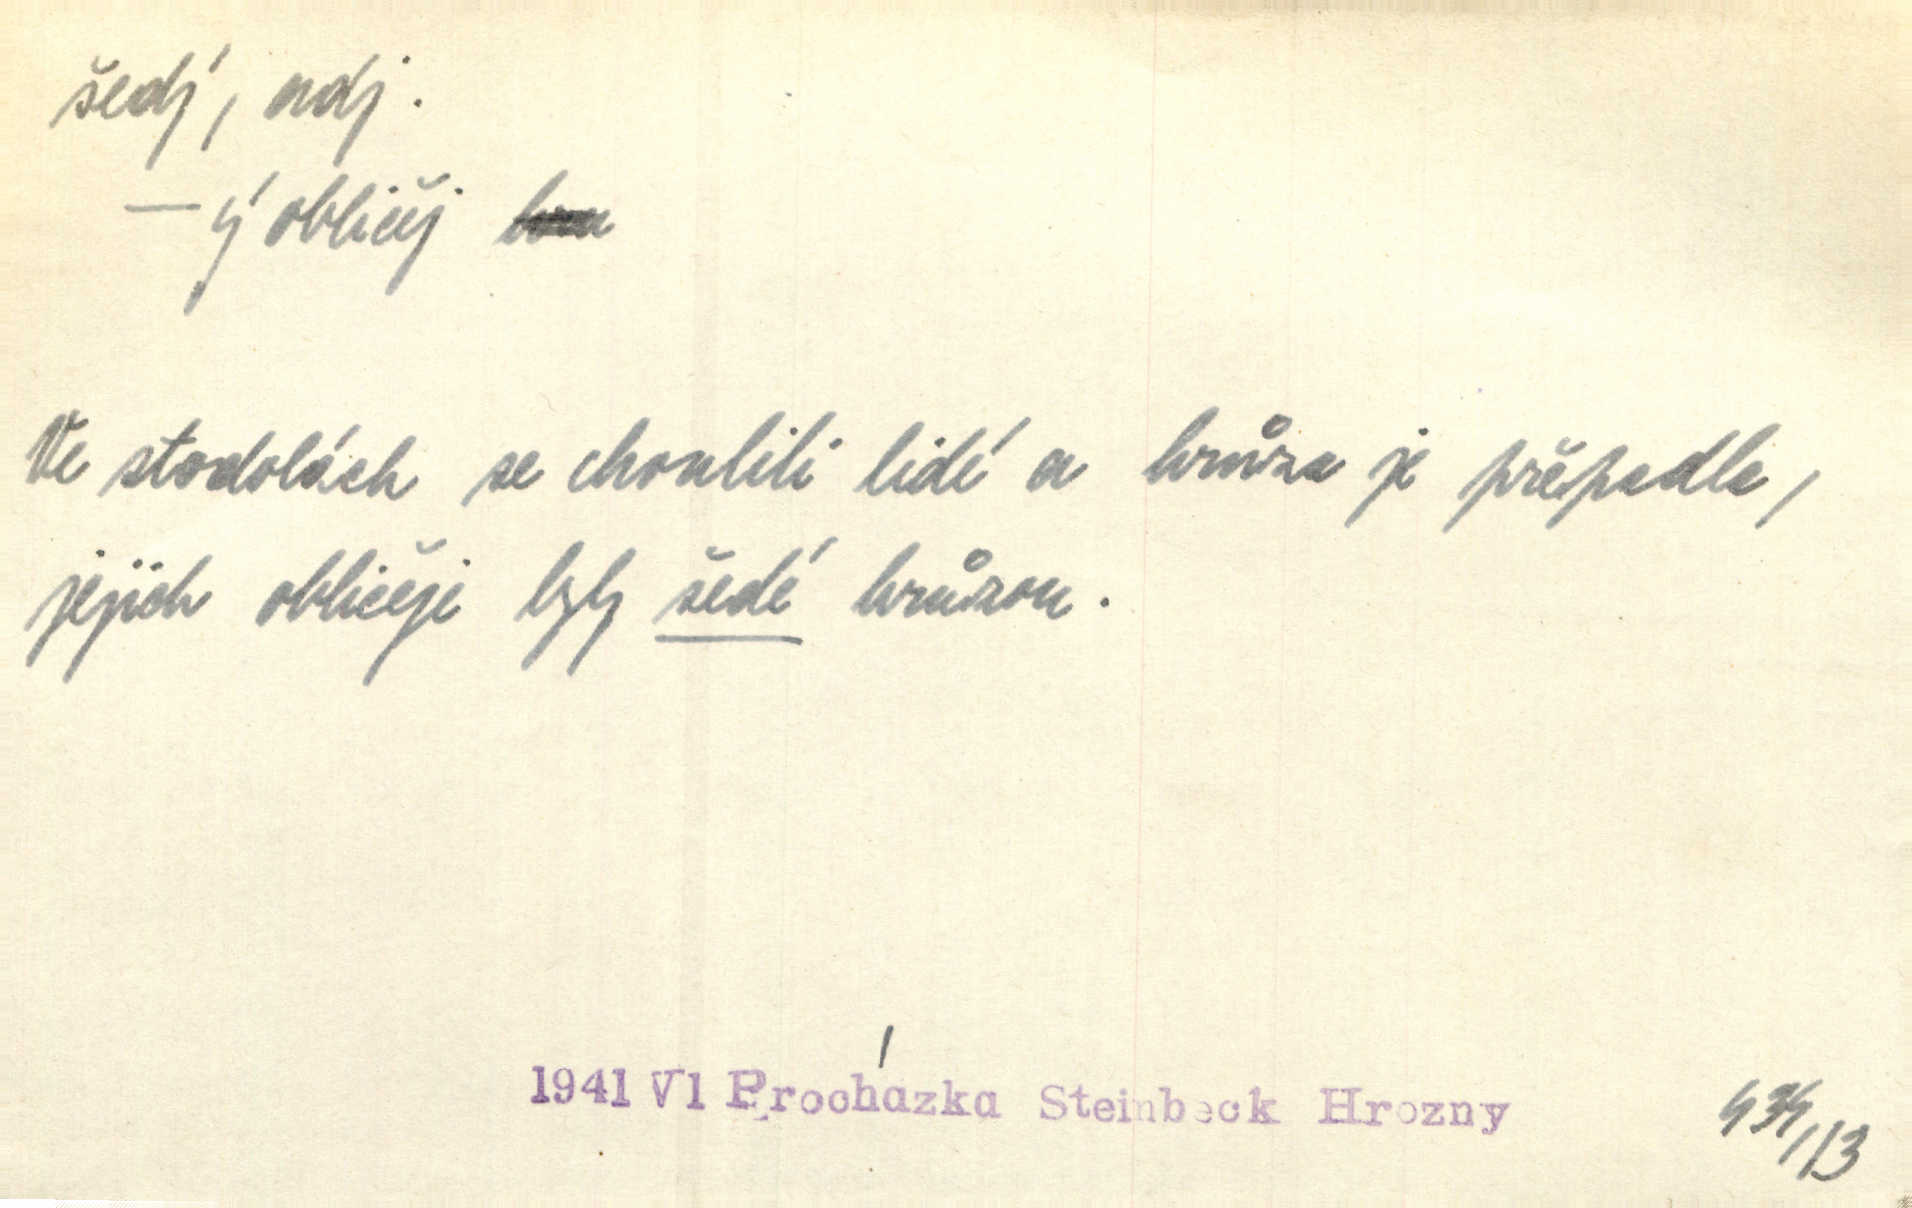 šedý, adj.
—ý obličej
Ve stodolách se choulili lidé a hrůza je přepadla,
jejich obličeje byly šedé hrůzou.
1941 VI Procházka Steinbeck Hrozny
434/113